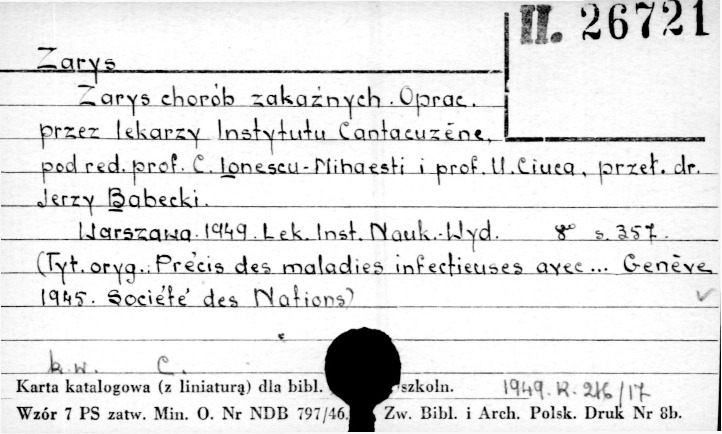 II. 26721
Zarys
Zarys chorób zakaźnych. Oprac.
przez lekarzy Instytutu Cantacuzéne,
pod red. prof. C. Ionescu-Mihaesti i prof. U. Ciuca, przeł. dr.
Jerzy Babecki.
Warszawa. 1949. Lek. Inst. Nauk.-Wyd. 8° s. 357.
(Tyt. oryg.: Précis des maladies infectieuses avec... Genève
1945. Société des Nations)
k.w. C.
Karta katalogowa (z liniaturą) dla bibl. szkoln. 1949. K. 216/17
Wzór 7 PS zatw. Min. O. Nr NDB 797/46. Zw. Bibl. i Arch. Polsk. Druk Nr 8b.